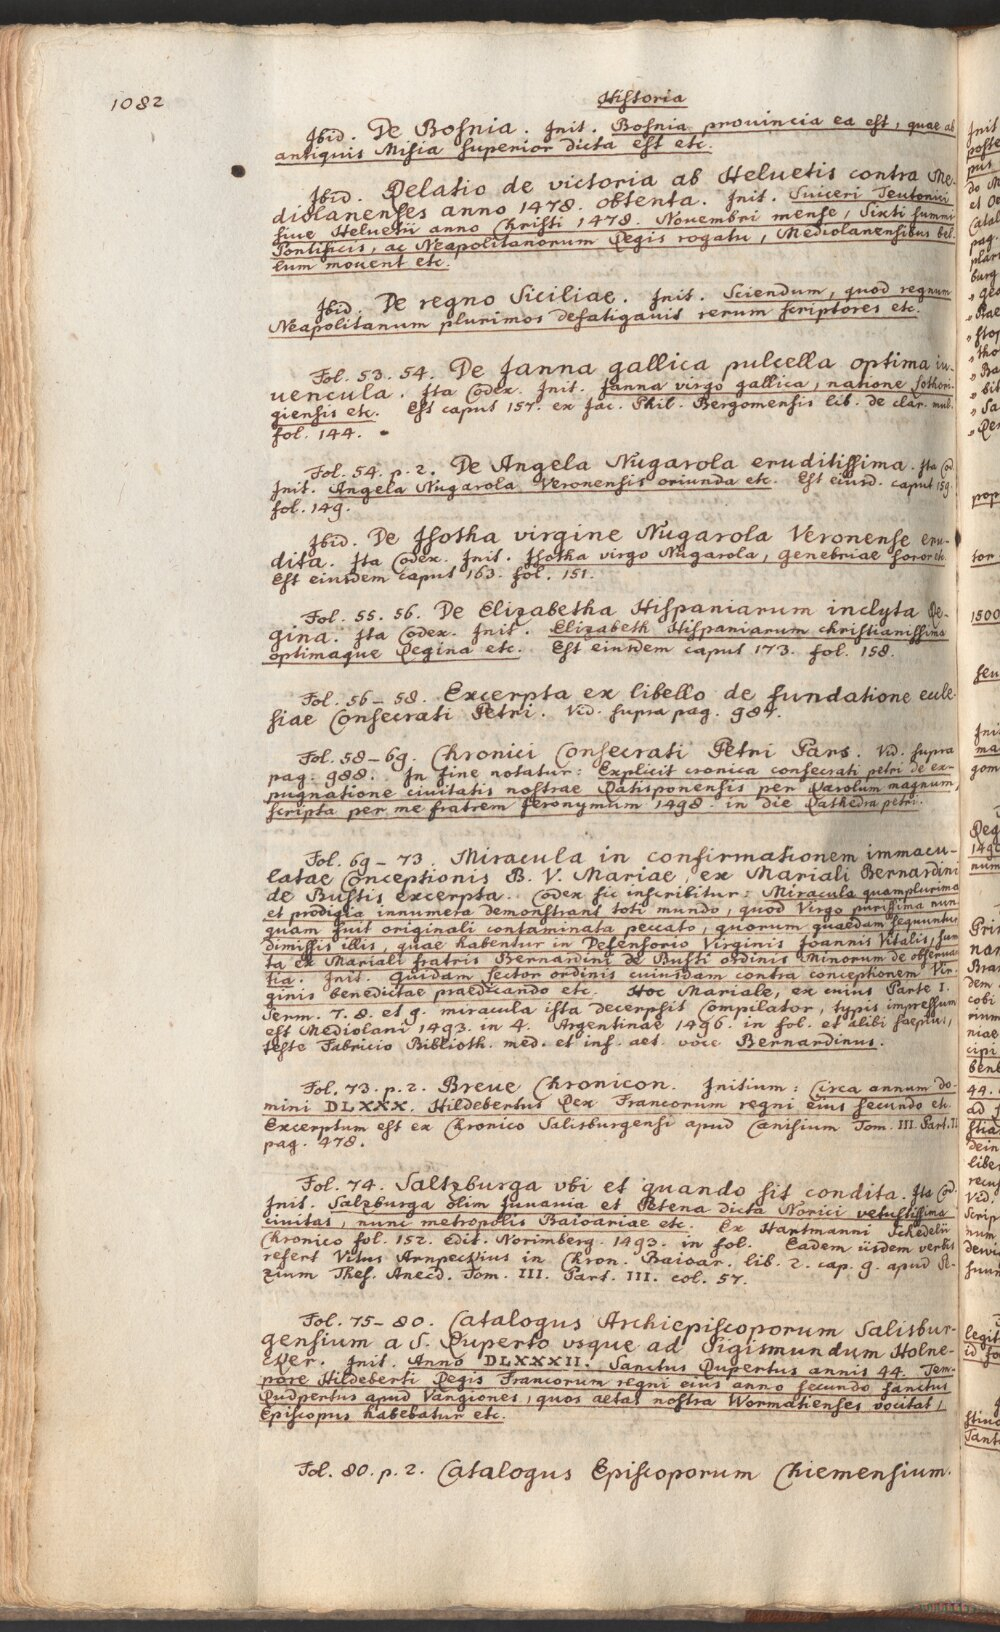 1082
Historia
Ibid. De Bosnia. Init. Bosnia prouincia ea est, quae ab
antiquis Misia superior dicta est etc.
Ibid. Relatio de victoria ab Heluetis contra Me-
diolanenses anno 1478. obtenta. Init. Suiceri Teutonici
siue Heluetii anno Christi 1478. Novembri mense, Sixti summi
Pontificis, ac Neapolitanorum Regis rogatu, Mediolanensibus bel-
lum mouent etc.
Ibid. De regno Siciliae. Init. Sciendum, quod regnum
Neapolitanum plurimos defatigauit rerum scriptores etc.
Fol. 53. 54. De Janna gallica pulcella optima iu-
uencula. Ita Codex. Init. Janna virgo gallica, natione Lothori-
giensis etc. Est caput 157. ex Jac. Phil. Bergomensis lib. de clar. mul.
fol. 144.
Fol. 54. p. 2. De Angela Nugarola eruditissima. Ita Cod.
Init. Angela Nugarola Veronensis oriunda etc. Est eiusd. caput 159.
fol. 149.
Ibid. De Isotha virgine Nugarola Veronense eru-
dita. Ita Codex. Init. Isotha virgo Nugarola, genebriae soror etc.
Est eiusdem caput 163. fol. 151.
Fol. 55. 56. De Elizabetha Hispaniarum inclyta Re-
gina. Ita Codex. Init. Elizabeth Hispaniarum christianissima
optimaque Regina etc. Est eiusdem caput 173. fol. 158.
Fol. 56-58. Excerpta ex libello de fundatione eccle-
siae Consecrati Petri. Vid. supra pag. 987.
Fol. 58-69. Chronici Consecrati Petri Pars. Vid. supra
pag. 988. In fine notatur: Explicit cronica consecrati petri de ex-
pugnatione ciuitatis nostrae Ratisponensis per Karolum magnum,
scripta per me fratrem Jeronymum 1498. in die Cathedra petri.
Fol. 69-73. Miracula in confirmationem immacu-
latae Conceptionis B. V. Mariae, ex Mariali Bernardini
de Bustis excerpta. Codex sic inscribitur: Miracula quamplurima
et prodigia innumera demonstrant toti mundo, quod Virgo purissima nun-
quam fuit originali contaminata peccato, quorum quaedam sequuntur
dimissis illis, quae habentur in Defensorio Virginis Joannis Vitalis, sum-
ta ex Mariali fratris Bernardini de Busti ordinis Minorum de obserua-
tia. Init. Quidam lector ordinis cuiusdam contra conceptionem Vir-
ginis benedictae praedicando etc. Hoc Mariale, ex cuius Parte I.
Serm. 7. 8. et 9. miracula ista decerpsit Compilator, typis impressum
est Mediolani 1493. in 4. Argentinae 1496. in fol. et alibi saepius,
teste Fabricio Biblioth. med. et inf. aet. voce Bernardinus.
Fol. 73. p. 2. Breue Chronicon. Initium: Circa annum do-
mini DLXXX. Hildebertus Rex Francorum regni eius secundo etc.
Excerptum est ex Chronico Salisburgensi apud Canisium Tom. III. Part. II
pag. 478.
Fol. 74. Saltzburga vbi et quando sit condita. Ita Cod.
Init. Salzburga olim Juuauia et Petena dicta Norici vetustissima
ciuitas, nunc metropolis Baioariae etc. Ex Hartmanni Schedelii
Chronico fol. 152. Edit. Norimberg. 1493. in fol. Eadem iisdem verbis
refert Vitus Arnpeckius in Chron. Baioar. lib. 2. cap. 9. apud Pe-
zium Thes. Anecd. Tom. III. Part. III. col. 57.
Fol. 75-80. Catalogus Archiepiscoporum Salisbur-
gensium a S. Ruperto vsque ad Sigismundum Holne-
cker. Init. Anno DLXXXII. Sanctus Rupertus annis 44. Tem-
pore Hildeberti Regis Francorum regni eius anno secundo sanctus
Rudpertus apud Vangiones, quos aetas nostra Wormatienses vocitat,
Episcopus habebatur etc.
Fol. 80. p. 2. Catalogus Episcoporum Chiemensium.